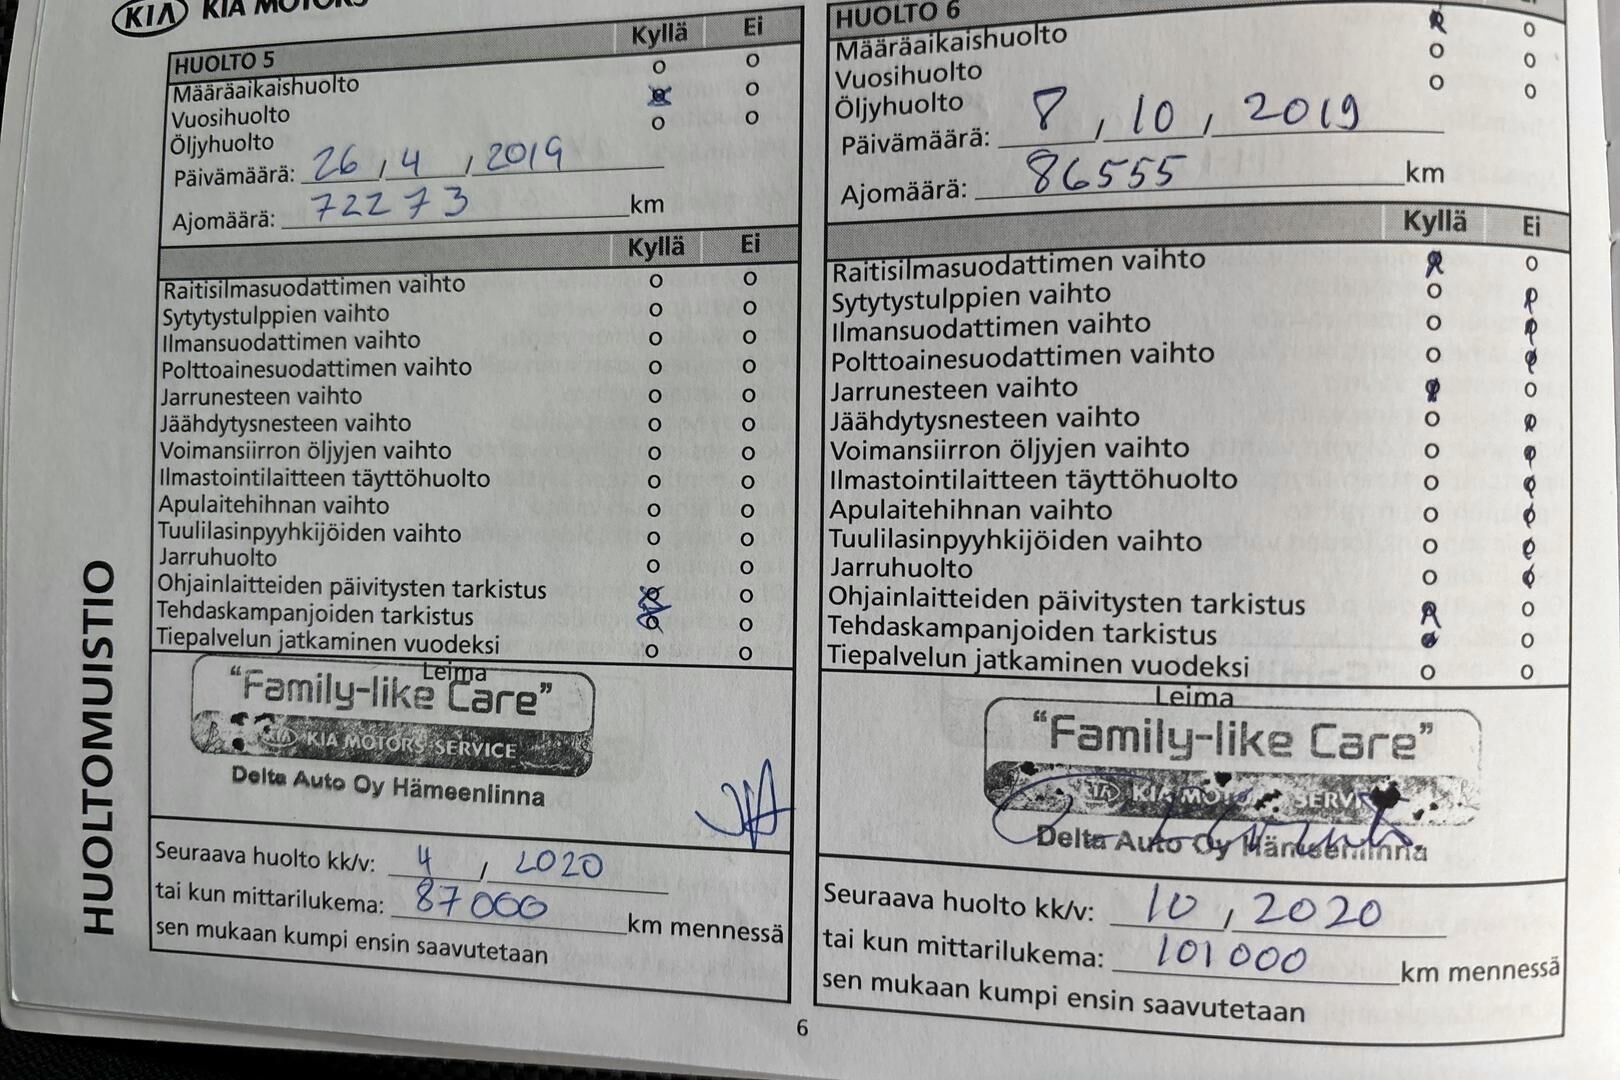 KIA KIA MOTORS
HUOLTO 5 Kyllä Ei
Määräaikaishuolto o o
Vuosihuolto o
Öljyhuolto o o
Päivämäärä: 26 , 4 , 2019
Ajomäärä: 72273 km
Kyllä Ei
Raitisilmasuodattimen vaihto o o
Sytytystulppien vaihto o o
Ilmansuodattimen vaihto o o
Polttoainesuodattimen vaihto o o
Jarrunesteen vaihto o o
Jäähdytysnesteen vaihto o o
Voimansiirron öljyjen vaihto o o
Ilmastointilaitteen täyttöhuolto o o
Apulaitehihnan vaihto o o
Tuulilasinpyyhkijöiden vaihto o o
Jarruhuolto o o
Ohjainlaitteiden päivitysten tarkistus o
Tehdaskampanjoiden tarkistus o
Tiepalvelun jatkaminen vuodeksi o o
Leima
"Family-like Care"
KIA KIA MOTORS SERVICE
Delta Auto Oy Hämeenlinna
Seuraava huolto kk/v: 4 , 2020
tai kun mittarilukema: 87000 km mennessä
sen mukaan kumpi ensin saavutetaan
HUOLTO 6 Ei
Määräaikaishuolto o
Vuosihuolto o o
Öljyhuolto o o
Päivämäärä: 8 , 10 , 2019
Ajomäärä: 86555 km
Kyllä Ei
Raitisilmasuodattimen vaihto o
Sytytystulppien vaihto o
Ilmansuodattimen vaihto o
Polttoainesuodattimen vaihto o
Jarrunesteen vaihto o
Jäähdytysnesteen vaihto o
Voimansiirron öljyjen vaihto o
Ilmastointilaitteen täyttöhuolto o
Apulaitehihnan vaihto o
Tuulilasinpyyhkijöiden vaihto o
Jarruhuolto o
Ohjainlaitteiden päivitysten tarkistus o
Tehdaskampanjoiden tarkistus o
Tiepalvelun jatkaminen vuodeksi o o
Leima
"Family-like Care"
KIA KIA MOTO SERVI
Delta Auto Oy Hämeenlinna
Seuraava huolto kk/v: 10 , 2020
tai kun mittarilukema: 101000 km mennessä
sen mukaan kumpi ensin saavutetaan
HUOLTOMUISTIO
6